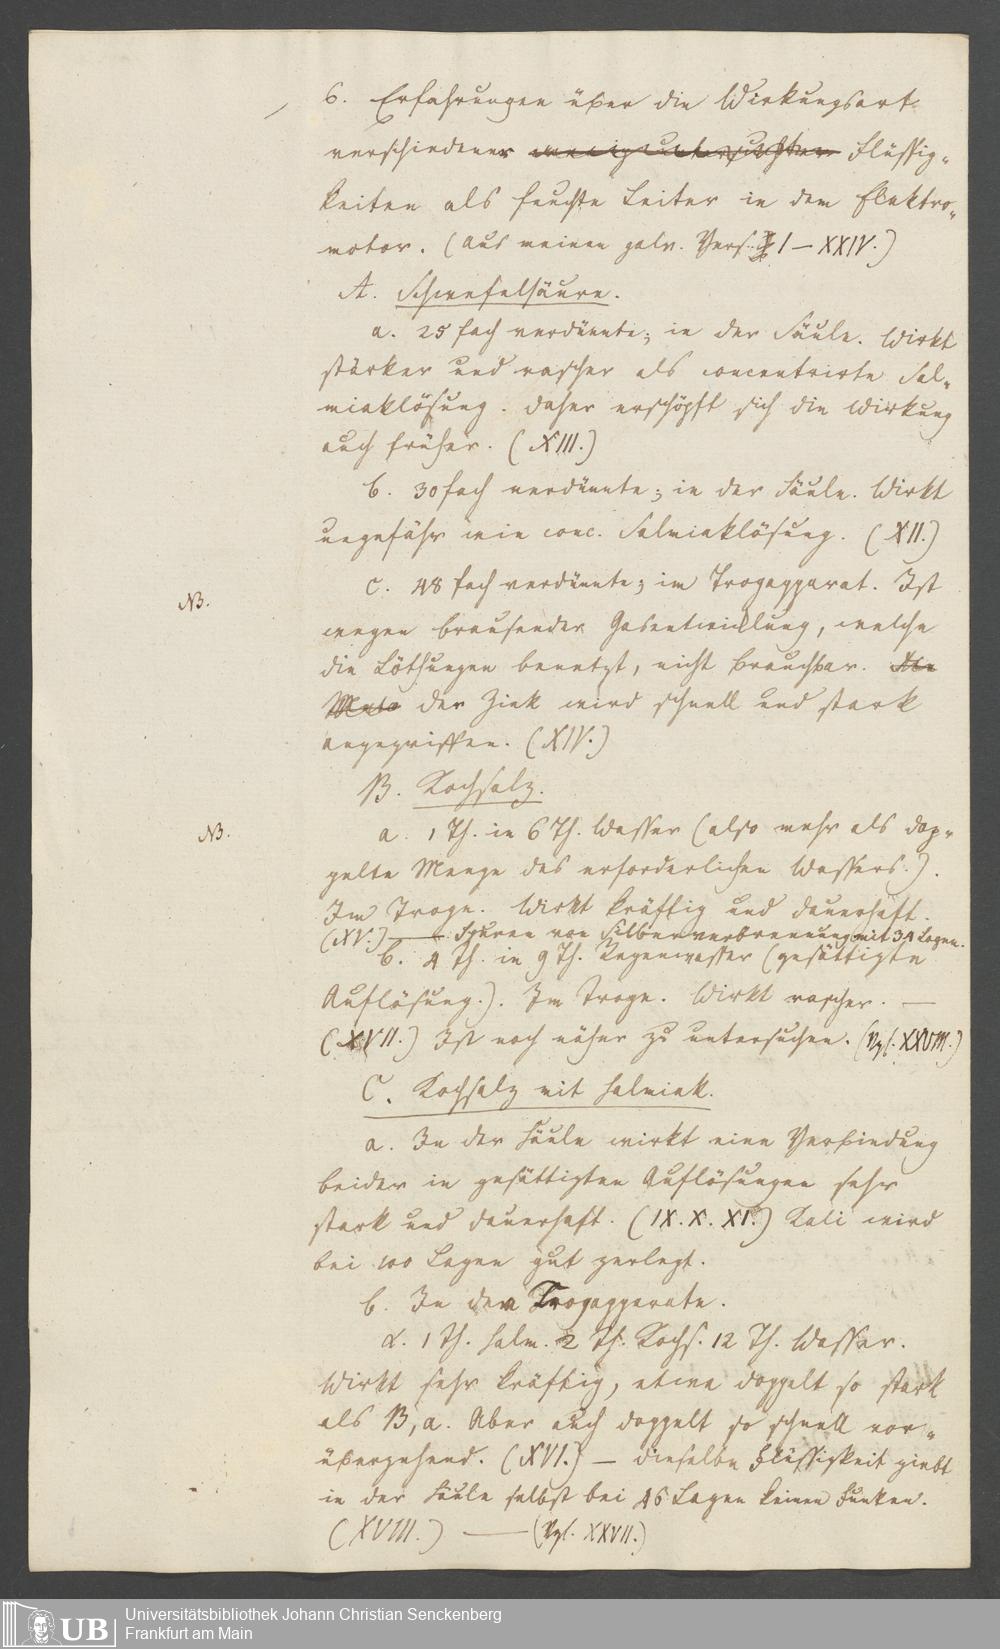 6. Erfahrungen über die Wirkungsart
verschiedener Flüssig-
keiten als feuchte Leiter in dem Elektro-
motor. (Aus meinen galv. Vers. I – XXIV.)
A. Schwefelsäure.
a. 25 fach verdünnte; in der Säule. Wirkt
stärker und rascher als concentrirte Sal-
miaklösung. Daher erschöpft sich die Wirkung
auch früher. (XIII.)
b. 30 fach verdünnte; in der Säule. Wirkt
ungefähr wie conc. Salmiaklösung. (XII.)
c. 48 fach verdünnte; im Trogapparat. Ist
NB.
wegen brausender Gasentwicklung, welche
die Löthungen benetzt, nicht brauchbar. Die
Meta der Zink wird schnell und stark
angegriffen. (XIV.)
B. Kochsalz.
NB.
a. 1 Th. in 6 Th. Wasser (also mehr als dop-
pelte Menge des erforderlichen Wassers.).
Im Troge. Wirkt kräftig und dauerhaft.
(XV.) — Spuren von Silberverbrennung mit 34 Lagen.
b. 4 Th. in 9 Th. Regenwasser (gesättigte
Auflösung.). Im Troge. Wirkt rascher. —
(XVII.) Ist noch näher zu untersuchen. (Vgl. XXVIII.)
C. Kochsalz mit Salmiak.
a. In der Säule wirkt eine Verbindung
beider in gesättigten Auflösungen sehr
stark und dauerhaft. (IX. X. XI.) Kali wird
bei 100 Lagen gut zerlegt.
b. In dem Trogapparate.
α. 1 Th. Salm. 2 Th. Kochs. 12 Th. Wasser.
Wirkt sehr kräftig, etwa doppelt so stark
als B, a. Aber auch doppelt so schnell vor-
übergehend. (XVI.) — Dieselbe Flüssigkeit giebt
in der Säule selbst bei 46 Lagen keinen Funken.
(XVIII.) — (Vgl. XXVII.)
UB
Universitätsbibliothek Johann Christian Senckenberg
Frankfurt am Main